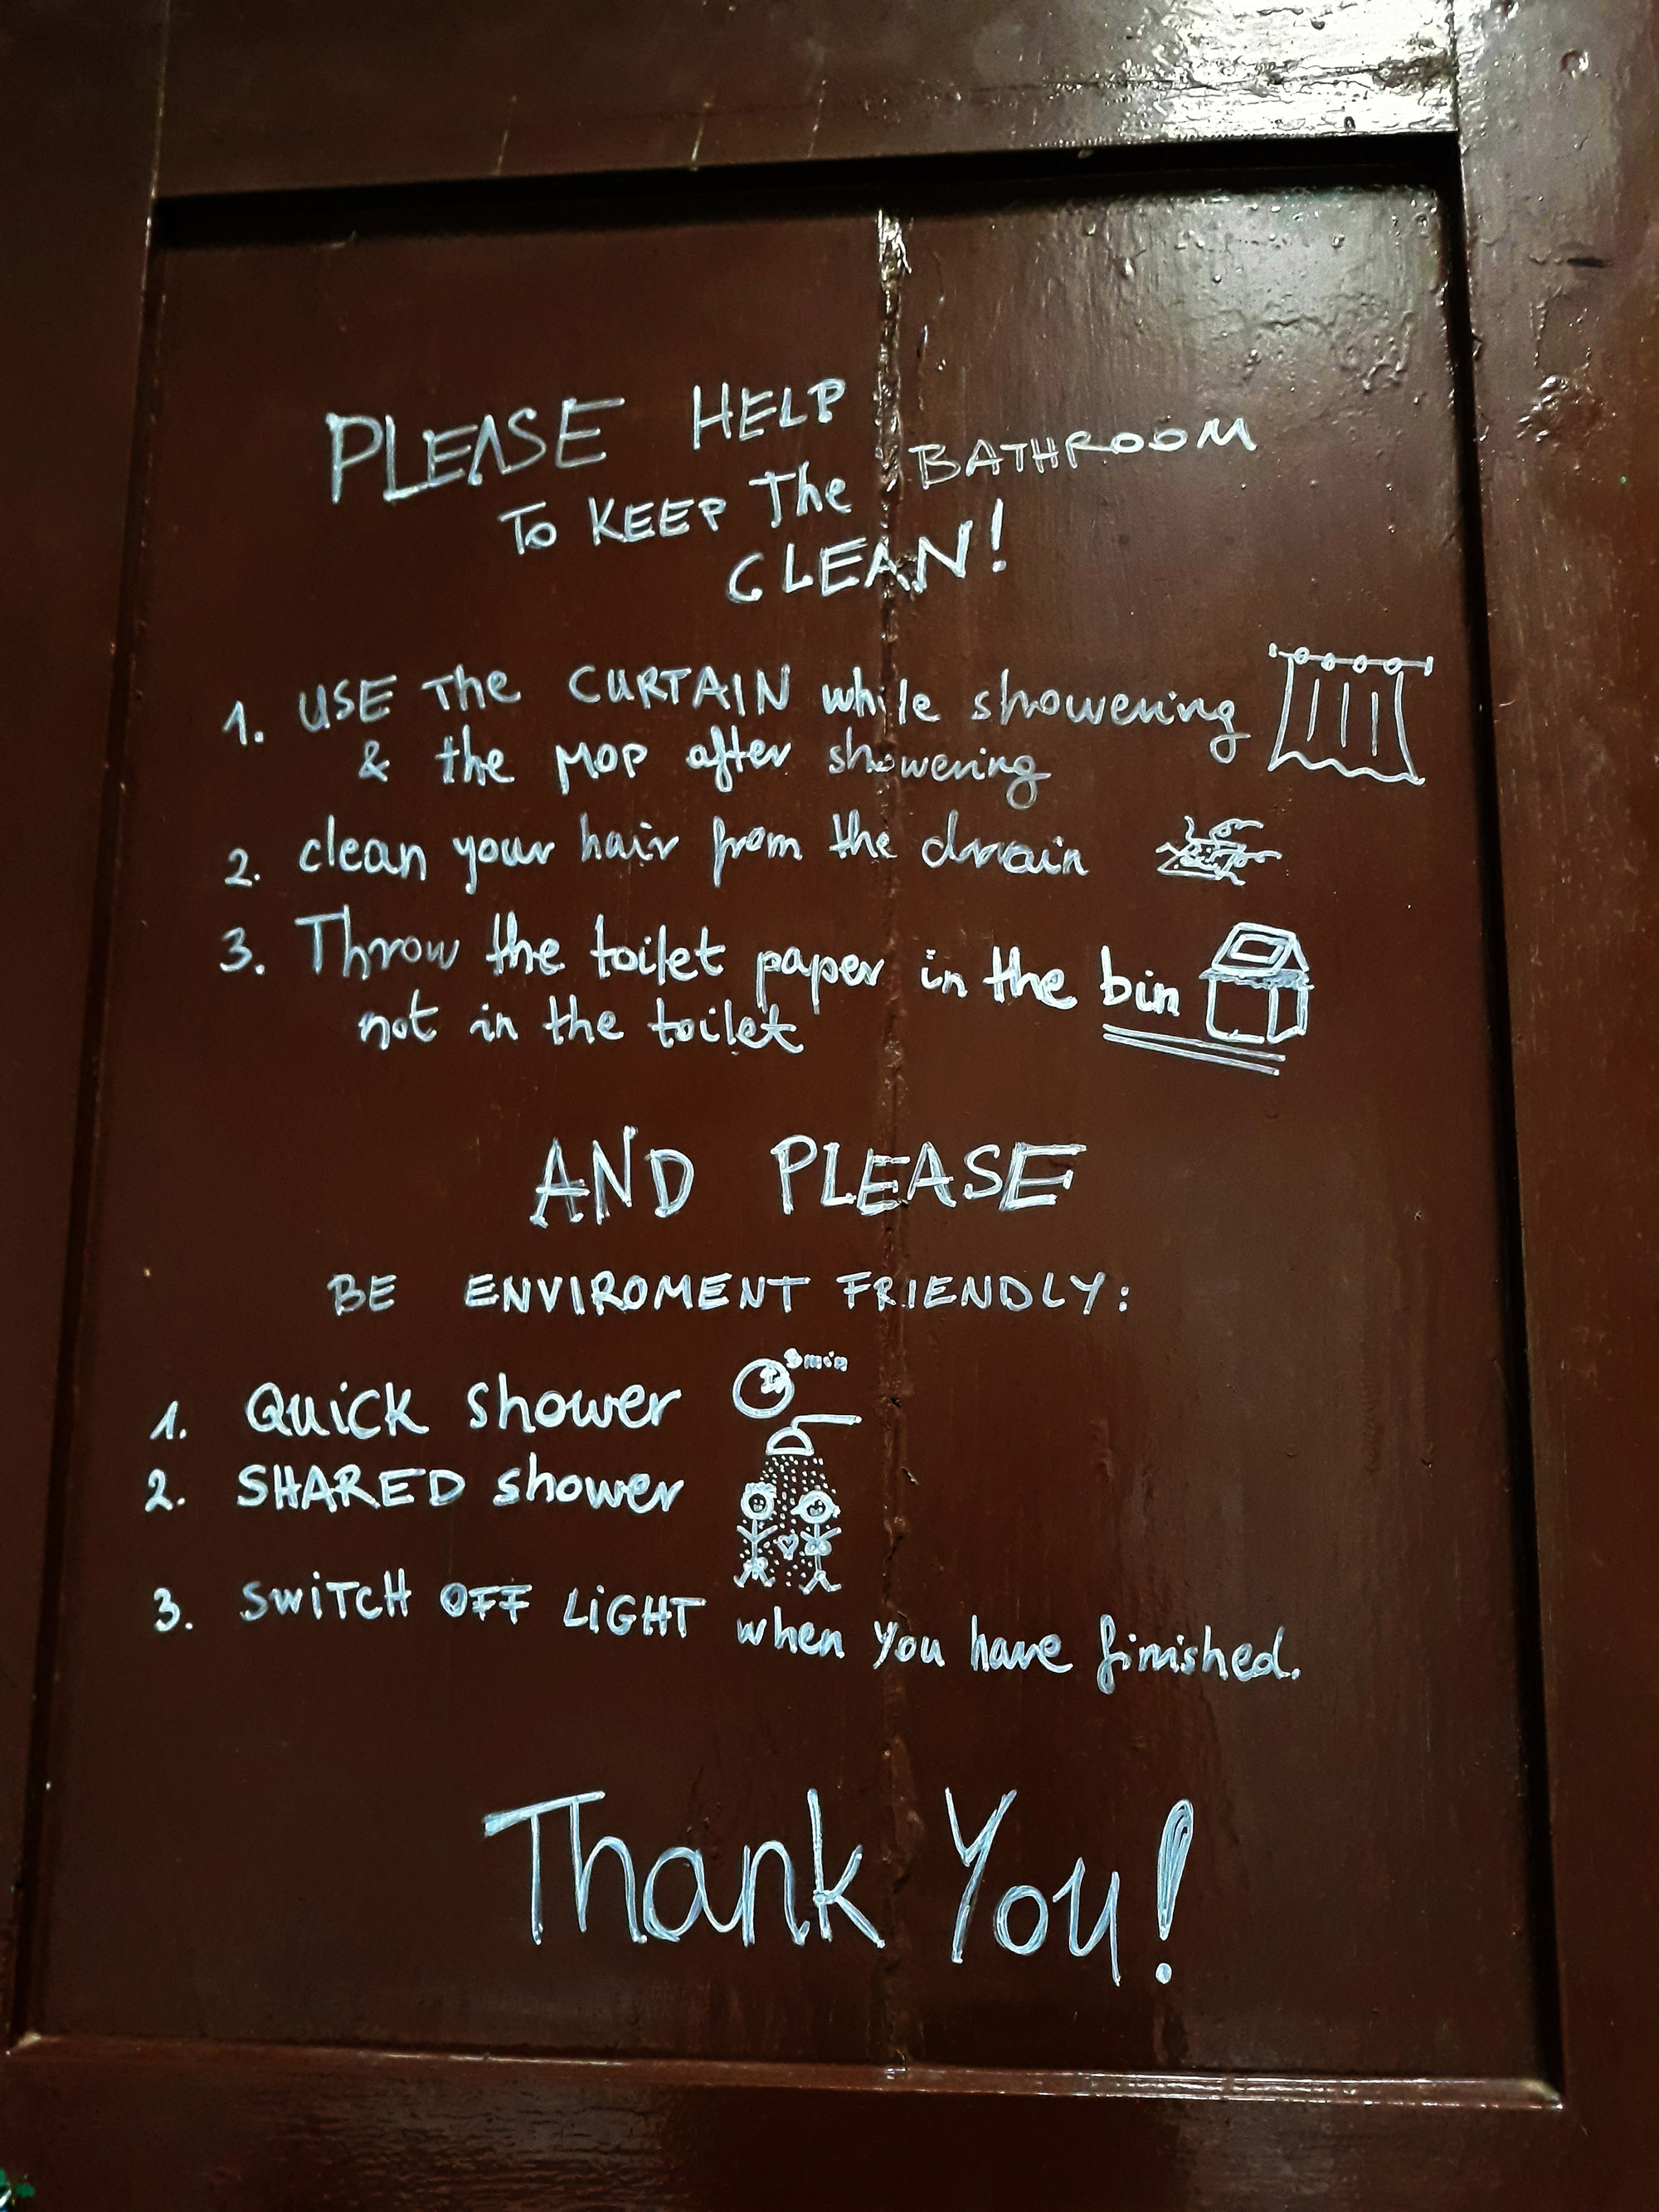 PLEASE HELP
TO KEEP The BATHROOM
CLEAN!
1. USE The CURTAIN while showering
& the MOP after showering
2. clean your hair from the drain
3. Throw the toilet paper in the bin
not in the toilet
AND PLEASE
BE ENVIROMENT FRIENDLY:
min
1. QuicK shower
2. SHARED shower
3. SWiTCH OFF LiGHT when you have finished.
Thank You!